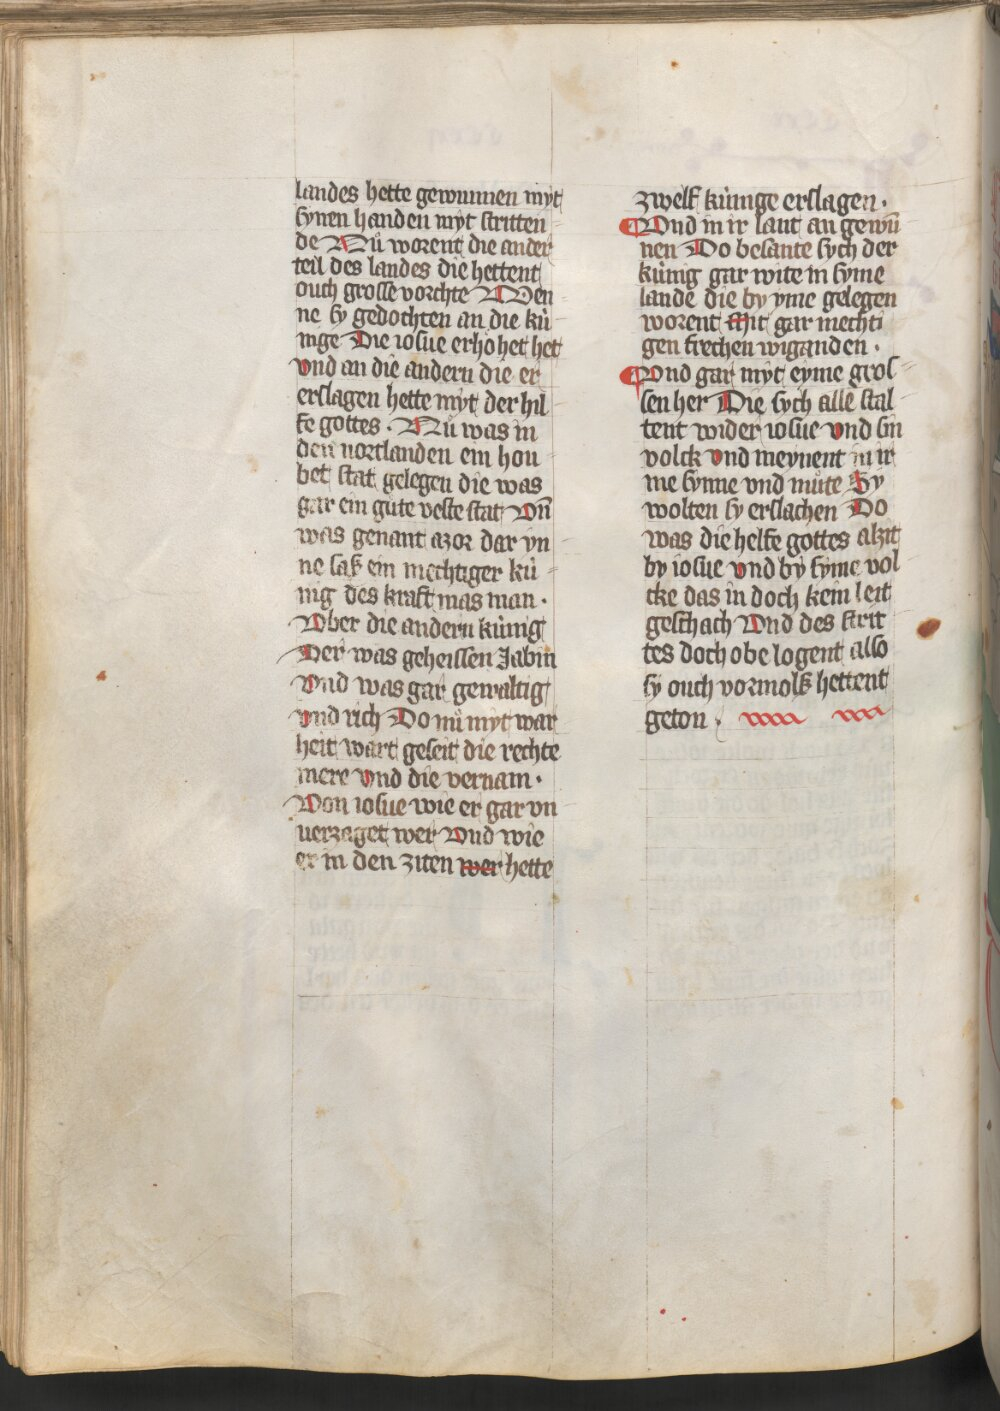 landes hette gewunnen myt
synen handen myt stritten
de Nů worent die ander
teil des landes die hettent
ouch grosse vorchte Wen
ne sy gedochten an die kü
nige Die iosue erhohet het
vnd an die andern die er
erslagen hette myt der hil
fe gottes · Nů was in
den nortlanden ein hou
bet stat gelegen die was
gar ein gute veste stat Vn̄
was genant azor dar yn
ne saß ein mechtiger kü
nig des kraft mas man ·
Vber die andern künig
Der was geheissen Jabin
Vnd was gar gewaltig
vnd rich Do nů myt war
heit wart geseit die rechte
mere vnd die vernam ·
Von iosue wie er gar vn
uerzaget wer Vnd wie
er in den ziten wer hette
zwelf künige erslagen ·
Vnd in ir lant an gewū
nen Do besante sych der
künig gar wite in syme
lande die by yme gelegen
worent Mit gar mechti
gen frechen wiganden ·
Vnd gar myt eyme gros
sen her Die sych alle stal
tent wider iosue vnd sin
volck vnd meynent in ir
me synne vnd můte Sy
wolten sy erslachen Do
was die helfe gottes alzit
by iosue vnd by syme vol
cke das in doch kein leit
geschach Vnd des strit
tes doch obe logent also
sy ouch vormols hettent
geton ·